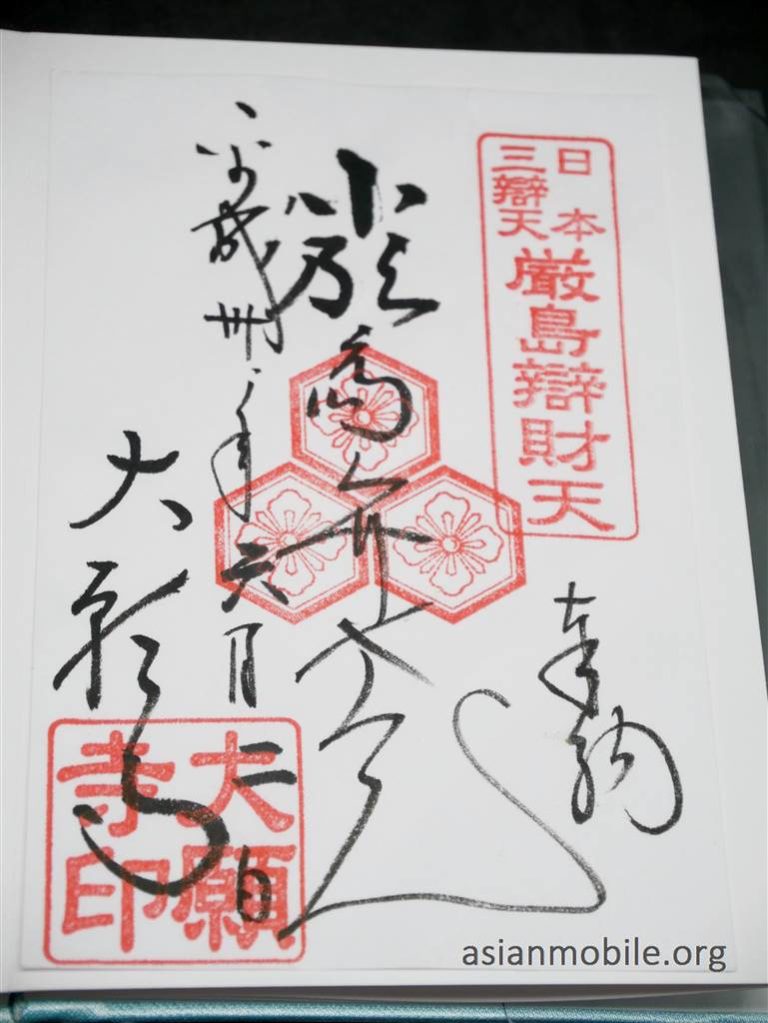 日本
三辯天
厳島辯財天
奉納
嚴島弁才天
平成卅年六月二日
大願寺
大願寺印
asianmobile.org